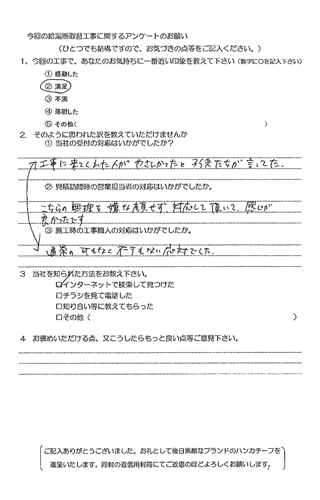 今回の給湯器取替工事に関するアンケートのお願い
(ひとつでも結構ですので、お気づきの点等をご記入ください。)
1、今回の工事で、あなたのお気持ちに一番近い印象を教えて下さい(数字に〇を記入下さい)
① 感動した
② 満足
③ 不満
④ 落胆した
⑤ その他( )
2. そのように思われた訳を教えていただけませんか
① 当社の受付の対応はいかがでしたか?
工事に来てくれた人がやさしかったと子供たちが言ってた.
② 見積訪問時の営業担当者の対応はいかがでしたか。
こちらの無理を嫌な顔せず、対応して頂いて、感じが
良かったです
③ 施工時の工事職人の対応はいかがでしたか。
通常の可もなく不可もない応対でした.
3 当社を知られた方法をお教え下さい。
☑インターネットで検索して見つけた
□チラシを見て電話した
□知り合い等に教えてもらった
□その他( )
4 お褒めいただける点、又こうしたらもっと良い点等ご意見下さい。
ご記入ありがとうございました。お礼として後日素敵なブランドのハンカチーフを
進呈いたします。同封の返信用封筒にてご返信のほどよろしくお願いします。